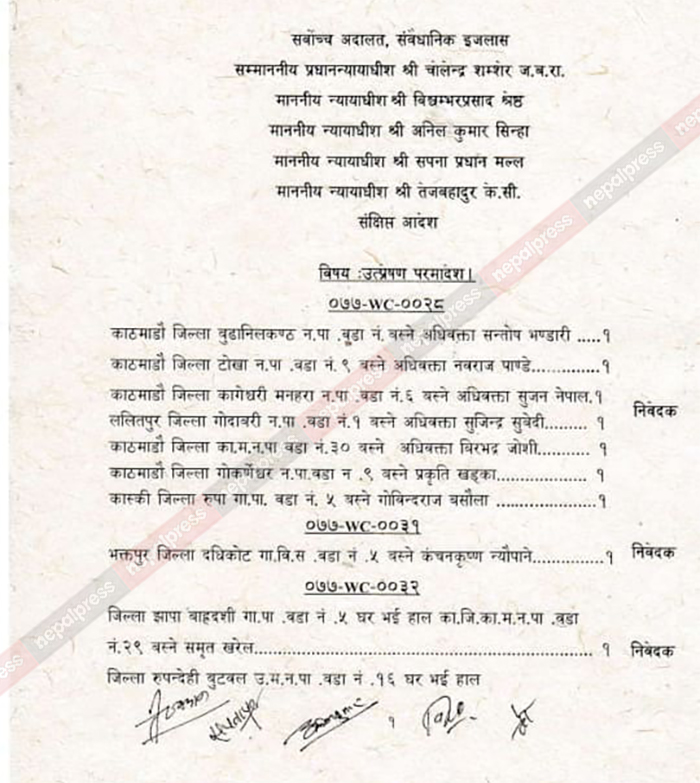 सर्वोच्च अदालत, संवैधानिक इजलास
सम्माननीय प्रधानन्यायाधीश श्री चोलेन्द्र शम्शेर ज.ब.रा.
माननीय न्यायाधीश श्री विश्वम्भरप्रसाद श्रेष्ठ
माननीय न्यायाधीश श्री अनिल कुमार सिन्हा
माननीय न्यायाधीश श्री सपना प्रधान मल्ल
माननीय न्यायाधीश श्री तेजबहादुर के.सी.
संक्षिप्त आदेश
विषय :उत्प्रेषण परमादेश।
०७७-WC-००२८
काठमाडौ जिल्ला बुढानिलकण्ठ न.पा .वडा नं. बस्ने अधिवक्ता सन्तोष भण्डारी .....१
काठमाडौ जिल्ला टोखा न.पा .वडा नं.९ बस्ने अधिवक्ता नवराज पाण्डे..............१
काठमाडौ जिल्ला कागेश्वरी मनहरा न.पा .वडा नं.६ बस्ने अधिवक्ता सुजन नेपाल.१
निवेदक
ललितपुर जिल्ला गोदावरी न.पा .वडा नं.१ बस्ने अधिवक्ता सुजिन्द्र सुवेदी......... १
काठमाडौ जिल्ला का.म.न.पा .वडा नं.३० बस्ने अधिवक्ता बिरभद्र जोशी........... १
काठमाडौ जिल्ला गोकर्णेश्वर न.पा.वडा न .९ बस्ने प्रकृति खड्का................... १
कास्की जिल्ला रुपा गा.पा. वडा नं. ५ बस्ने गोविन्दराज बसौला ....................१
०७७-WC-००३१
भक्तपुर जिल्ला दधिकोट गा.वि.स .वडा नं .५ बस्ने कंचनकृष्ण न्यौपाने.............१ निवेदक
०७७-WC-००३२
जिल्ला झापा बाह्रदशी गा.पा .वडा नं .५ घर भई हाल का.जि.का.म.न.पा .वडा
नं.२९ बस्ने समृत खरेल.................................................................. १ निवेदक
जिल्ला रुपन्देही बुटवल उ.म.न.पा .वडा नं .१६ घर भई हाल
१
nepalpress
nepalpress
nepalpress
nepalpress
nepalpress
nepalpress
nepalpress